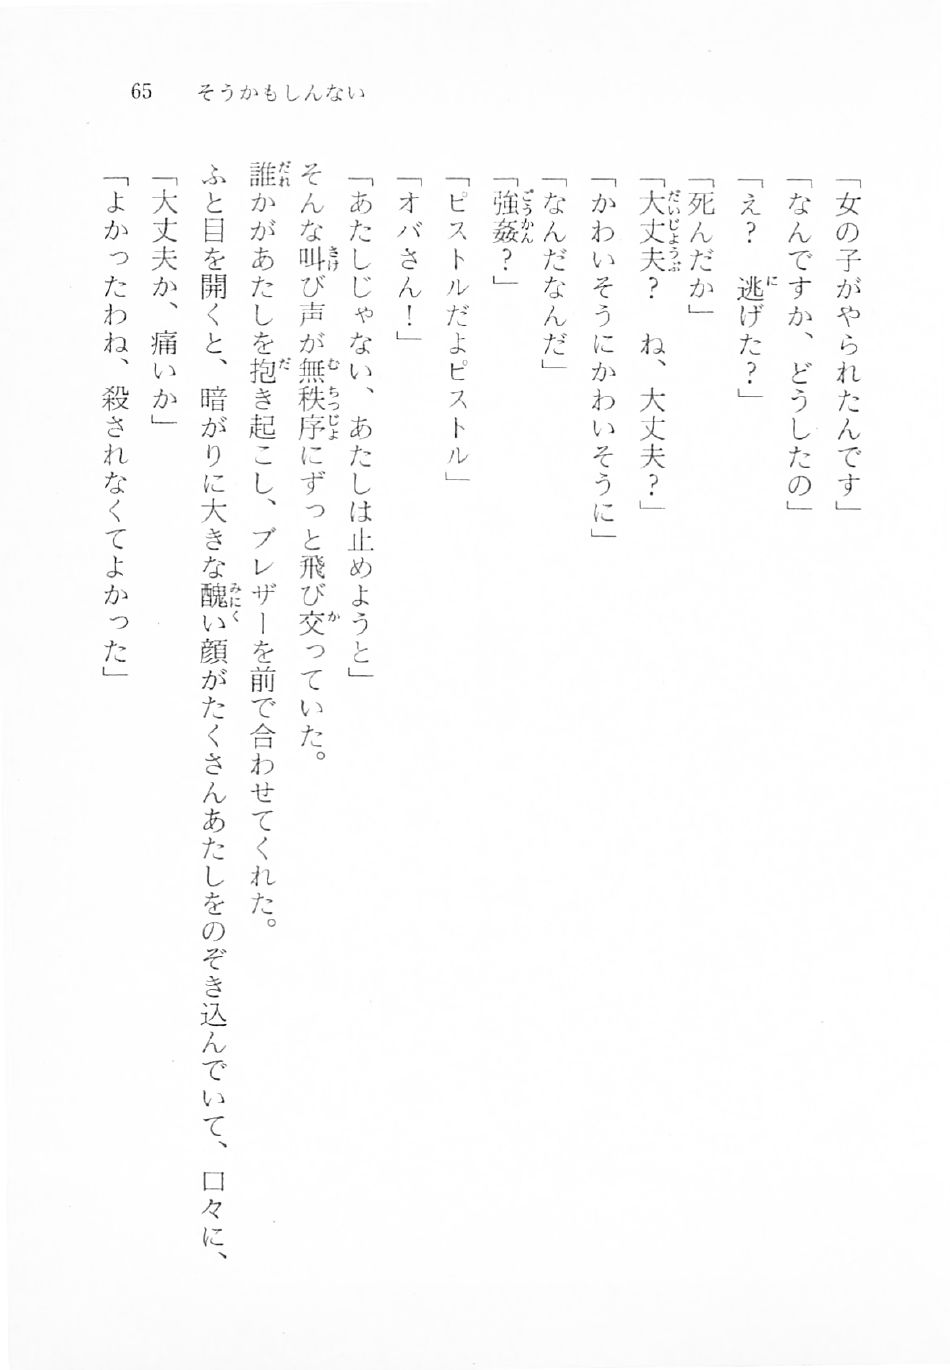 65 そうかもしんない
「女の子がやられたんです」
「なんですか、どうしたの」
「え？　逃げた？」
「死んだか」
「大丈夫？　ね、大丈夫？」
「かわいそうにかわいそうに」
「なんだなんだ」
「強姦？」
「ピストルだよピストル」
「オバさん！」
「あたしじゃない、あたしは止めようと」
そんな叫び声が無秩序にずっと飛び交っていた。
誰かがあたしを抱き起こし、ブレザーを前で合わせてくれた。
ふと目を開くと、暗がりに大きな醜い顔がたくさんあたしをのぞき込んでいて、口々に、
「大丈夫か、痛いか」
「よかったわね、殺されなくてよかった」